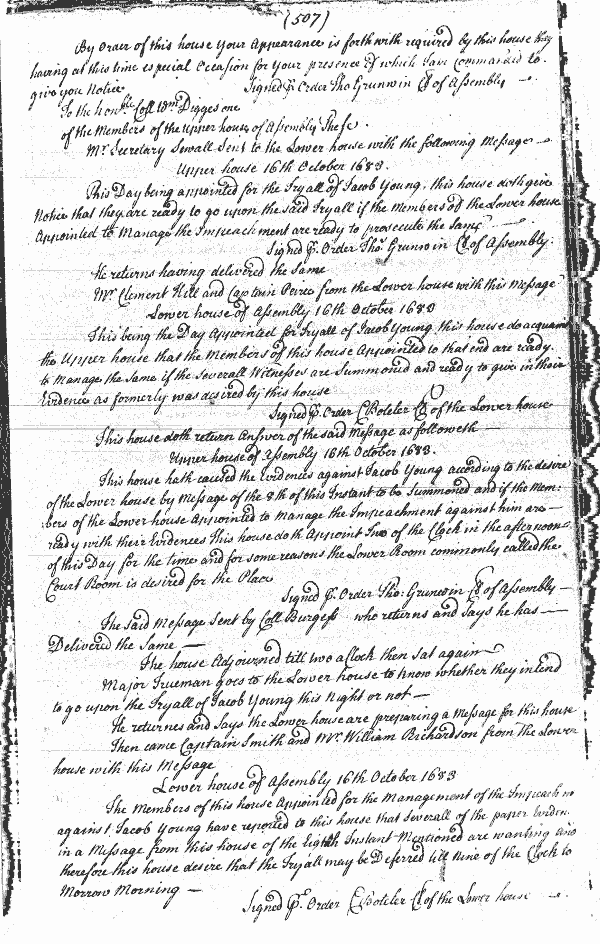 (507)
By Order of this house your Appearance is forthwith required by this house they
having at this time especial Occasion for your presence of which I am commanded to
give you Notice Signed P. Order Tho Grunwin Cl of Assembly
To the honble Coll Wm Digges one
of the Members of the upper house of Assembly These.
Mr. Secretary Sewall Sent to the Lower house with the following Message
Upper house 16th October 1683.
This Day being appointed for the Tryall of Jacob Young, this house doth give
Notice that they are ready to go upon the said Tryall if the Members of the Lower house
Appointed to Manage the Impeachment are ready to prosecute the Same
Signed P. Order Tho. Grunwin Cl of Assembly:
He returns having delivered the Same
Mr Clement Hill and Captain Peirce from the Lower house with this Message
Lower house of Assembly 16th October 1683
This being the Day Appointed for Tryall of Jacob Young this house do acquaint
the Upper house that the Members of this house Appointed to that end are ready.
to Manage the Same if the Severall Witnesses are Summoned and ready to give in their
Evidence as formerly was desired by this house
Signed P. Order C Boteler Cl of the Lower house
This house doth return Answer of the said Message as followeth
Upper house of Assembly 16th October 1683.
This house hath caused the Evidences against Jacob Young according to the desire
of the Lower house by Message of the 8th of this Instant to be Summoned and if the Mem:
bers of the Lower house Appointed to Manage the Impeachment against him are
ready with their Evidences This house doth Appoint Two of the Clock in the afternoon
of this Day for the time and for some reasons the Lower Room commonly called the
Court Room is desired for the Place
Signed P. Order Tho: Grunwin Cl of Assembly
The Said Message Sent by Coll Burgess who returns and Says he has
Delivered the Same
The house Adjourned till two a Clock then Sat again
Major Trueman goes to the Lower house to know whether they intend
to go upon the Tryall of Jacob Young this Night or not
He returnes and Says the Lower house are preparing a Message for this house
Then came Captain Smith and Mr. William Richardson from The Lower
house with this Message
Lower house of Assembly 16th October 1683
The Members of this house Appointed for the Management of the Impeachm
against Jacob Young have reported to this house that Severall of the paper Eviden.
in a Message from this house of the Eighth Instant Mentioned are wanting and
therefore this house desire that the Tryall may be Deferred till Nine of the Clock to
Morrow Morning
Signed P. Order C Boteler Cl of the Lower house